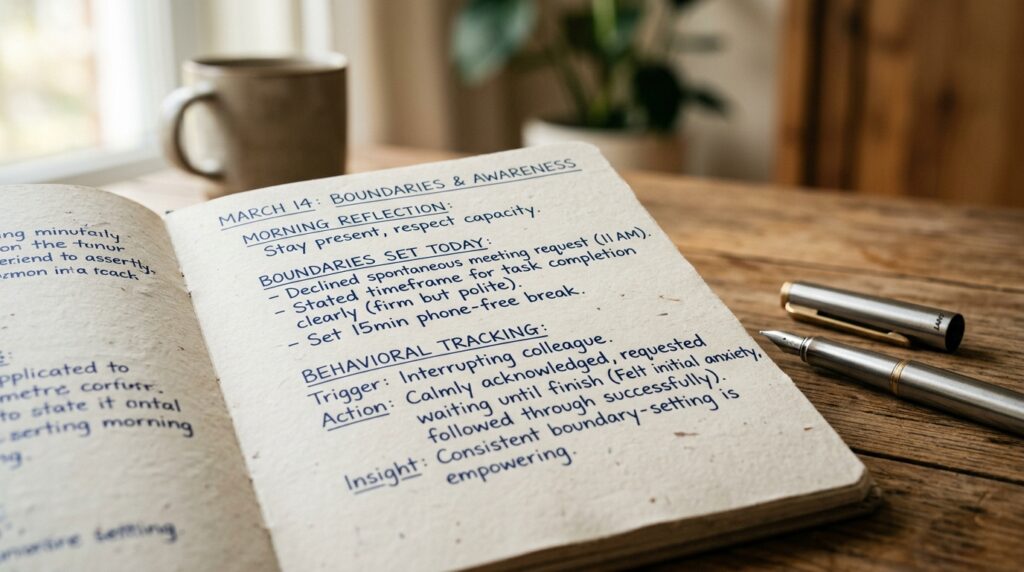 ng minutaily
on the tunur
eriend to assertly.
pplicated to
to state it ontal
serting morning
MARCH 14: BOUNDARIES & AWARENESS
MORNING REFLECTION:
Stay present, respect capacity.
BOUNDARIES SET TODAY:
- Declined spontaneous meeting request (11 AM).
- Stated timeframe for task completion
clearly (firm but polite).
- Set 15min phone-free break.
BEHAVIORAL TRACKING:
Trigger: Interrupting colleague.
Action: Calmly acknowledged, requested
waiting until finish (Felt initial anxiety,
followed through successfully).
Insight: Consistent boundary-setting is
empowering.